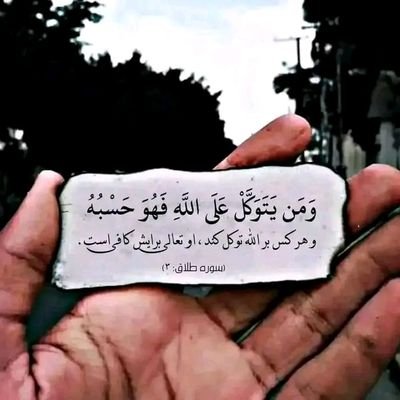 وَمَن يَتَوَكَّلْ عَلَى اللَّهِ فَهُوَ حَسْبُهُ
و هر کس بر الله توکل کند، او تعالی برایش کافی است.
(سوره طلاق: ۳)